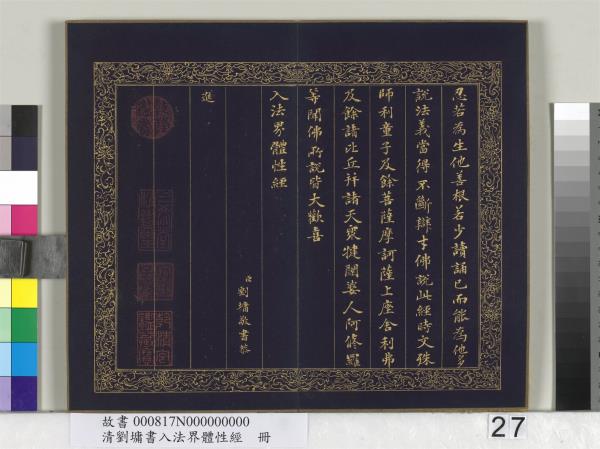 忍若為生他善根若少讀誦已而能為他多
說法義當得不斷辯才佛說此經時文殊
師利童子及餘菩薩摩訶薩上座舍利弗
及餘諸比丘并諸天眾揵闥婆人阿修羅
等聞佛所說皆大歡喜
入法界體性經
臣劉墉敬書恭
進
故書 000817N000000000
清劉墉書入法界體性經 冊
27